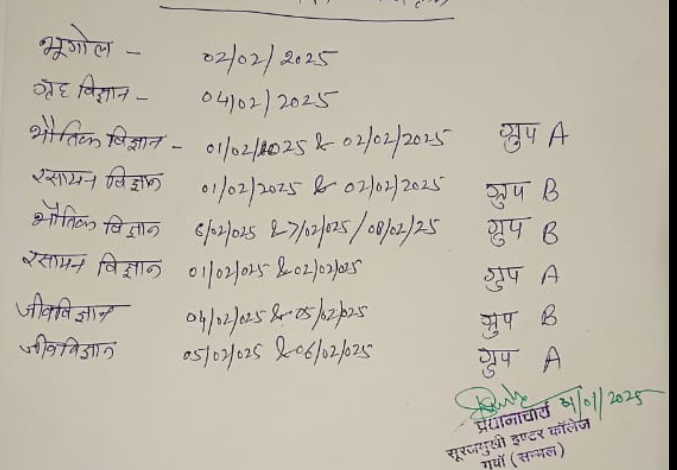 भूगोल - 02/02/2025
गृह विज्ञान - 04/02/2025
भौतिक विज्ञान - 01/02/2025 & 02/02/2025 ग्रुप A
रसायन विज्ञान 01/02/2025 & 02/02/2025 ग्रुप B
भौतिक विज्ञान 6/02/025 & 7/02/025/08/02/25 ग्रुप B
रसायन विज्ञान 01/02/025 & 02/02/025 ग्रुप A
जीवविज्ञान 04/02/025 & 05/02/025 ग्रुप B
जीवविज्ञान 05/02/025 & 06/02/025 ग्रुप A
31/01/2025
प्रधानाचार्य
सूरजमुखी इण्टर कॉलेज
गवाँ (सम्भल)